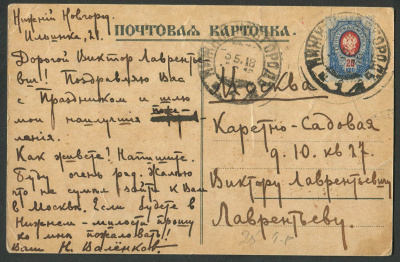 Нижний Новгород.
Ильинка, 21.
ПОЧТОВАЯ КАРТОЧКА.
Дорогой Виктор Лавренть
вич! Поздравляю Вас
с Праздником и шлю
мои наилучшія поже-
ланія.
Как живете? Напишите.
Буду очень рад. Жалею
что не сумел зайти к Вам
в Москве. Если будете в
Нижнем - милости прошу
ко мне пожаловать!
Ваш Н. Валенков.
Москва
Каретно-Садовая
д. 10. кв 27.
Виктору Лаврентьевичу
Лаврентьеву.